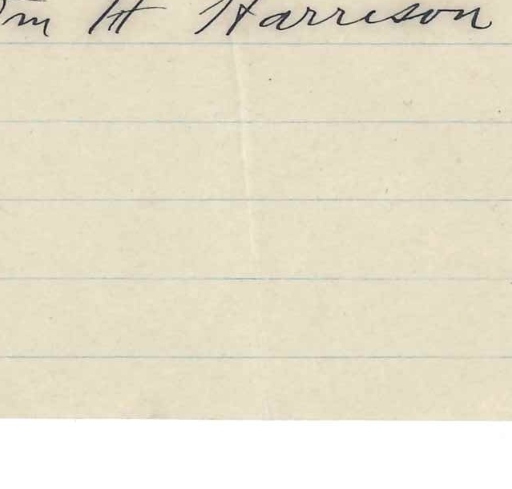 Wm H Harrison